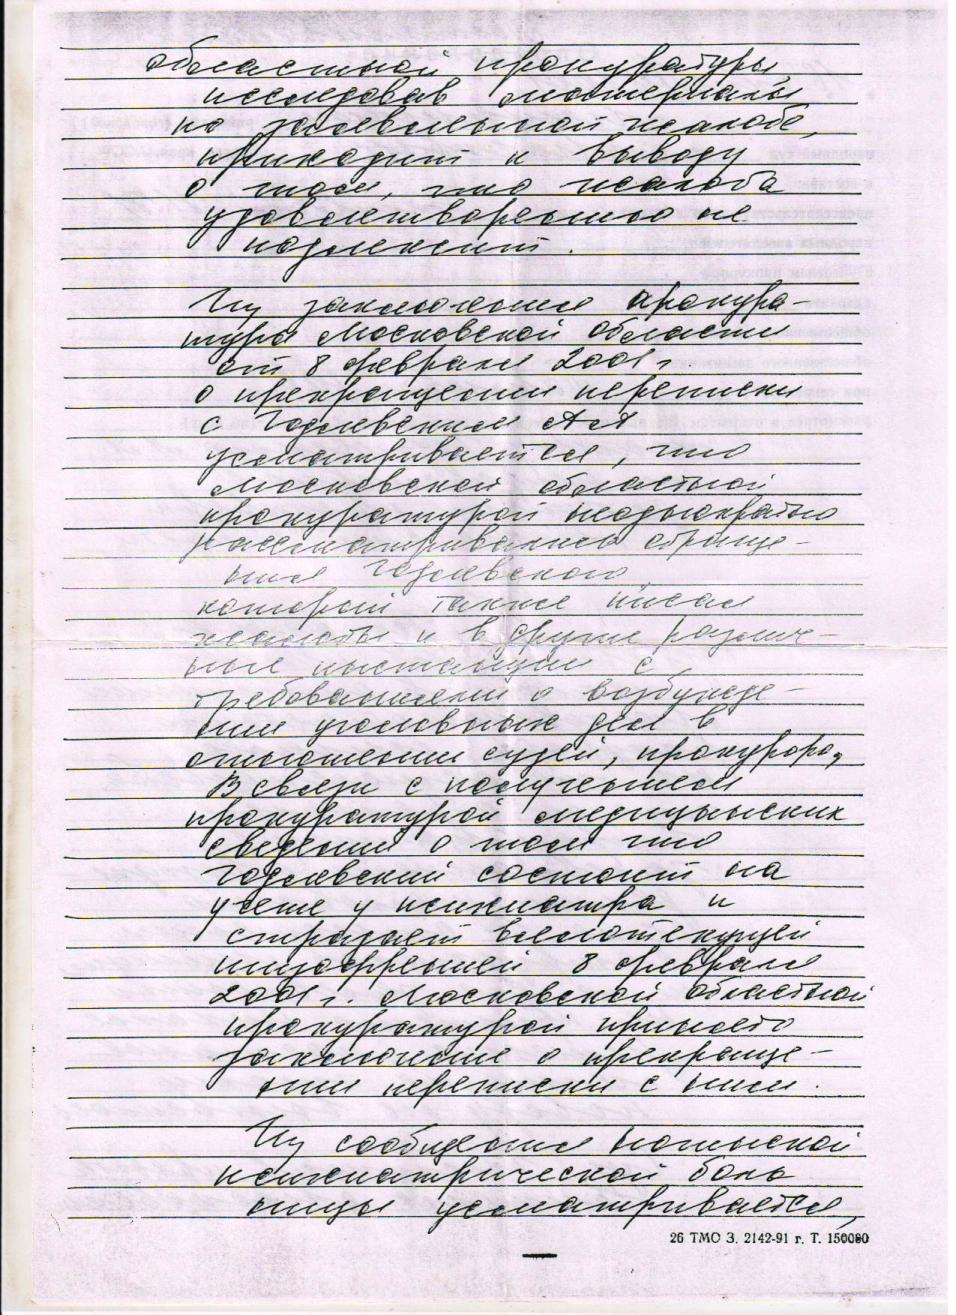 областной прокуратуры
исследовав материалы
по заявленной жалобе,
приходит к выводу
о том, что жалоба
удовлетворению не
подлежит.
Из заключения прокура-
тура Московской области
от 8 февраля 2001 г
о прекращении переписки
с Годлевским А А
усматривается, что
Московской областной
прокуратурой неоднократно
рассматривались обраще-
ния Годлевского,
который также писал
жалобы и в другие различ-
ные инстанции с
требованиями о возбужде-
нии уголовных дел в
отношении судей, прокурора,
В связи с получением
прокуратурой медицинских
сведений о том что
Годлевский состоит на
учете у психиатра и
страдает вялотекущей
шизофренией 8 февраля
2001 г. Московской областной
прокуратурой принято
заключение о прекраще-
нии переписки с ним.
Из сообщения
психиатрической боль
ницы усматривается,
26 ТМО З. 2142-91 г. Т. 150000